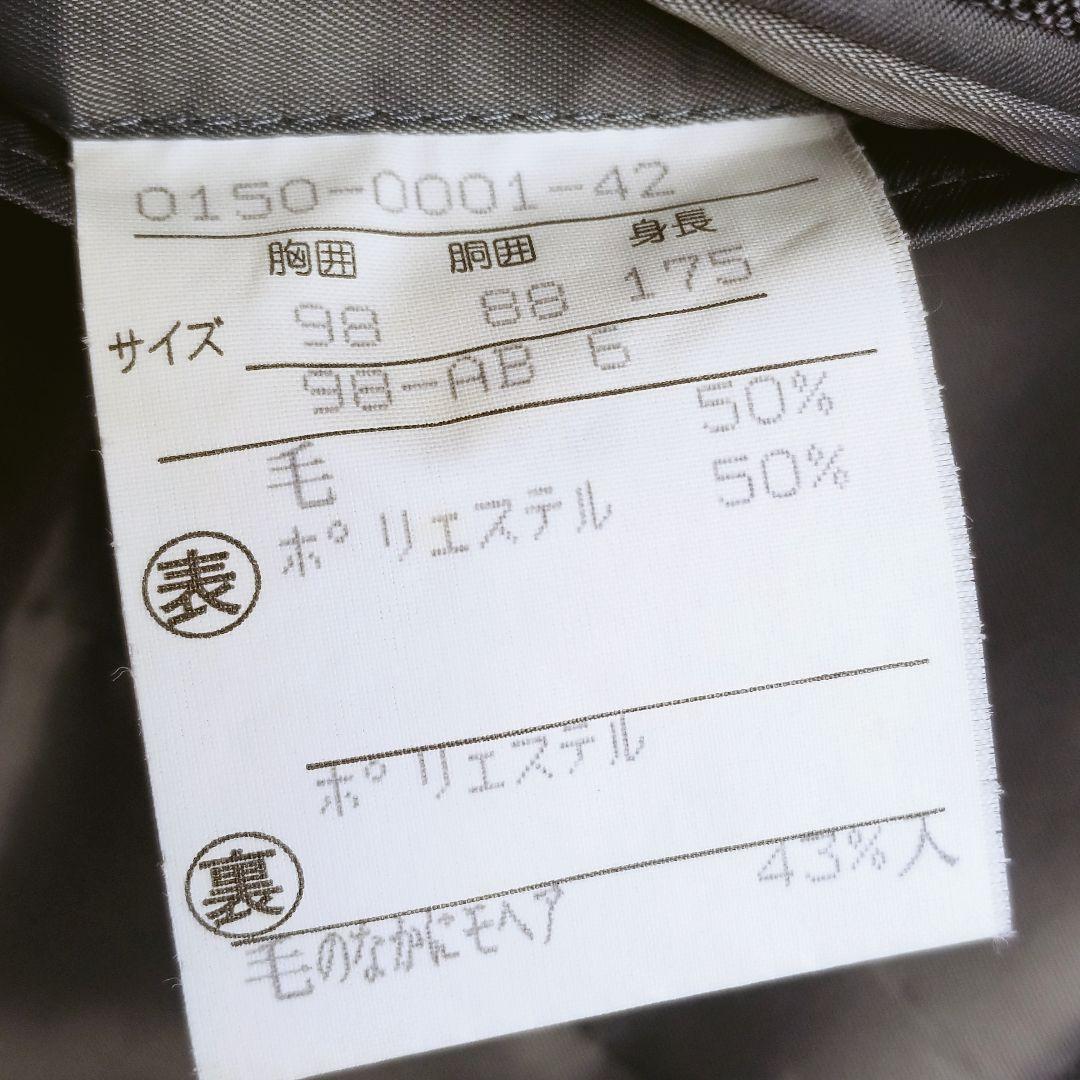 0150-0001-42
胸囲 胴囲 身長
サイズ 98 88 175
98-AB 6
毛 50%
ポリエステル 50%
表
ポリエステル
裏
毛のなかにモヘア 43%入